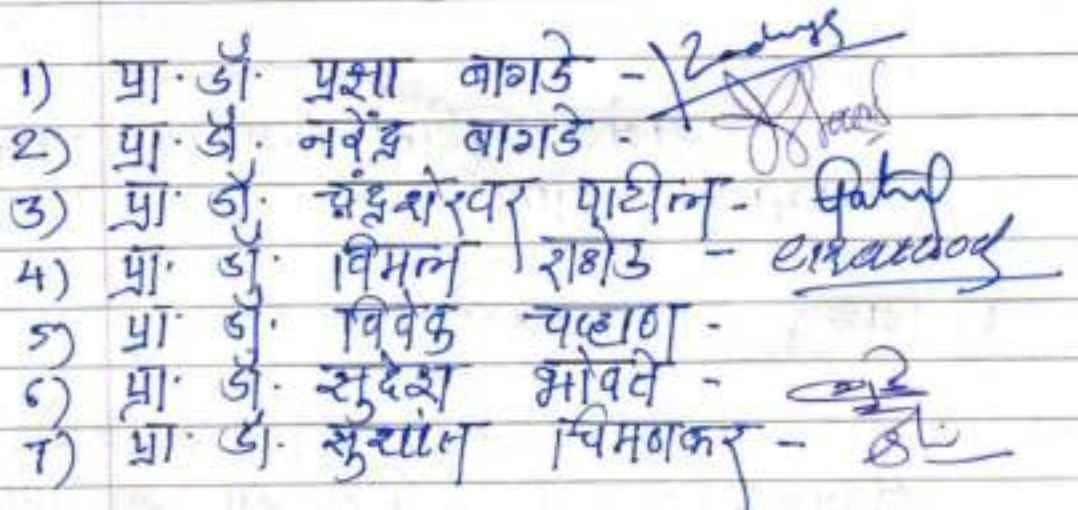 1) प्रा. डॉ. प्रज्ञा बागडे -
2) प्रा. डॉ. नवेंद्र बागडे -
3) प्रा. डॉ. चंद्रशेखर पाटील - Patil
4) प्रा. डॉ. विमल राठोड -
5) प्रा. डॉ. विवेक चव्हाण -
6) प्रा. डॉ. सुदेश भोवते -
7) प्रा. डॉ. सुशांत चिमणकर -